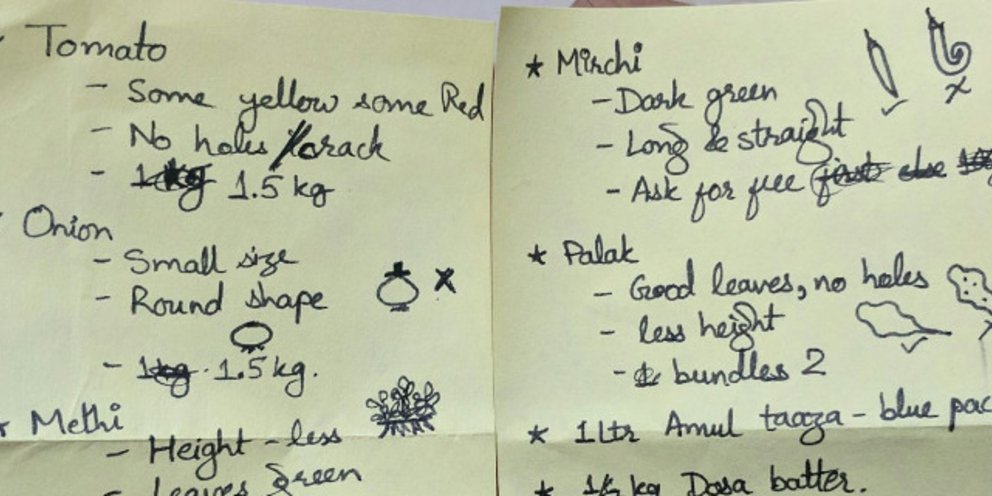 Tomato
- Some yellow some Red
- No holes / crack
- 1.5 kg
Onion
- Small size
- Round shape
- 1.5 kg.
* Methi
- Height - less
- Leaves green
* Mirchi
- Dark green
- Long & straight
- Ask for free
* Palak
- Good leaves, no holes
- less height
- bundles 2
* 1 Ltr Amul taaza - blue pac
* kg Dosa batter.